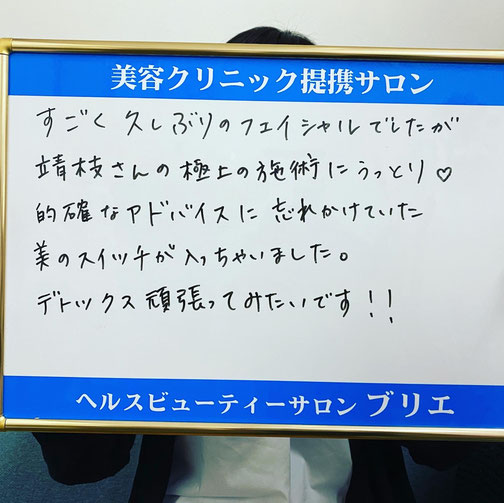 美容クリニック提携サロン
すごく久しぶりのフェイシャルでしたが
靖枝さんの極上の施術にうっとり♡
的確なアドバイスに忘れかけていた
美のスイッチが入っちゃいました。
デトックス頑張ってみたいです!!
ヘルスビューティーサロン ブリエ